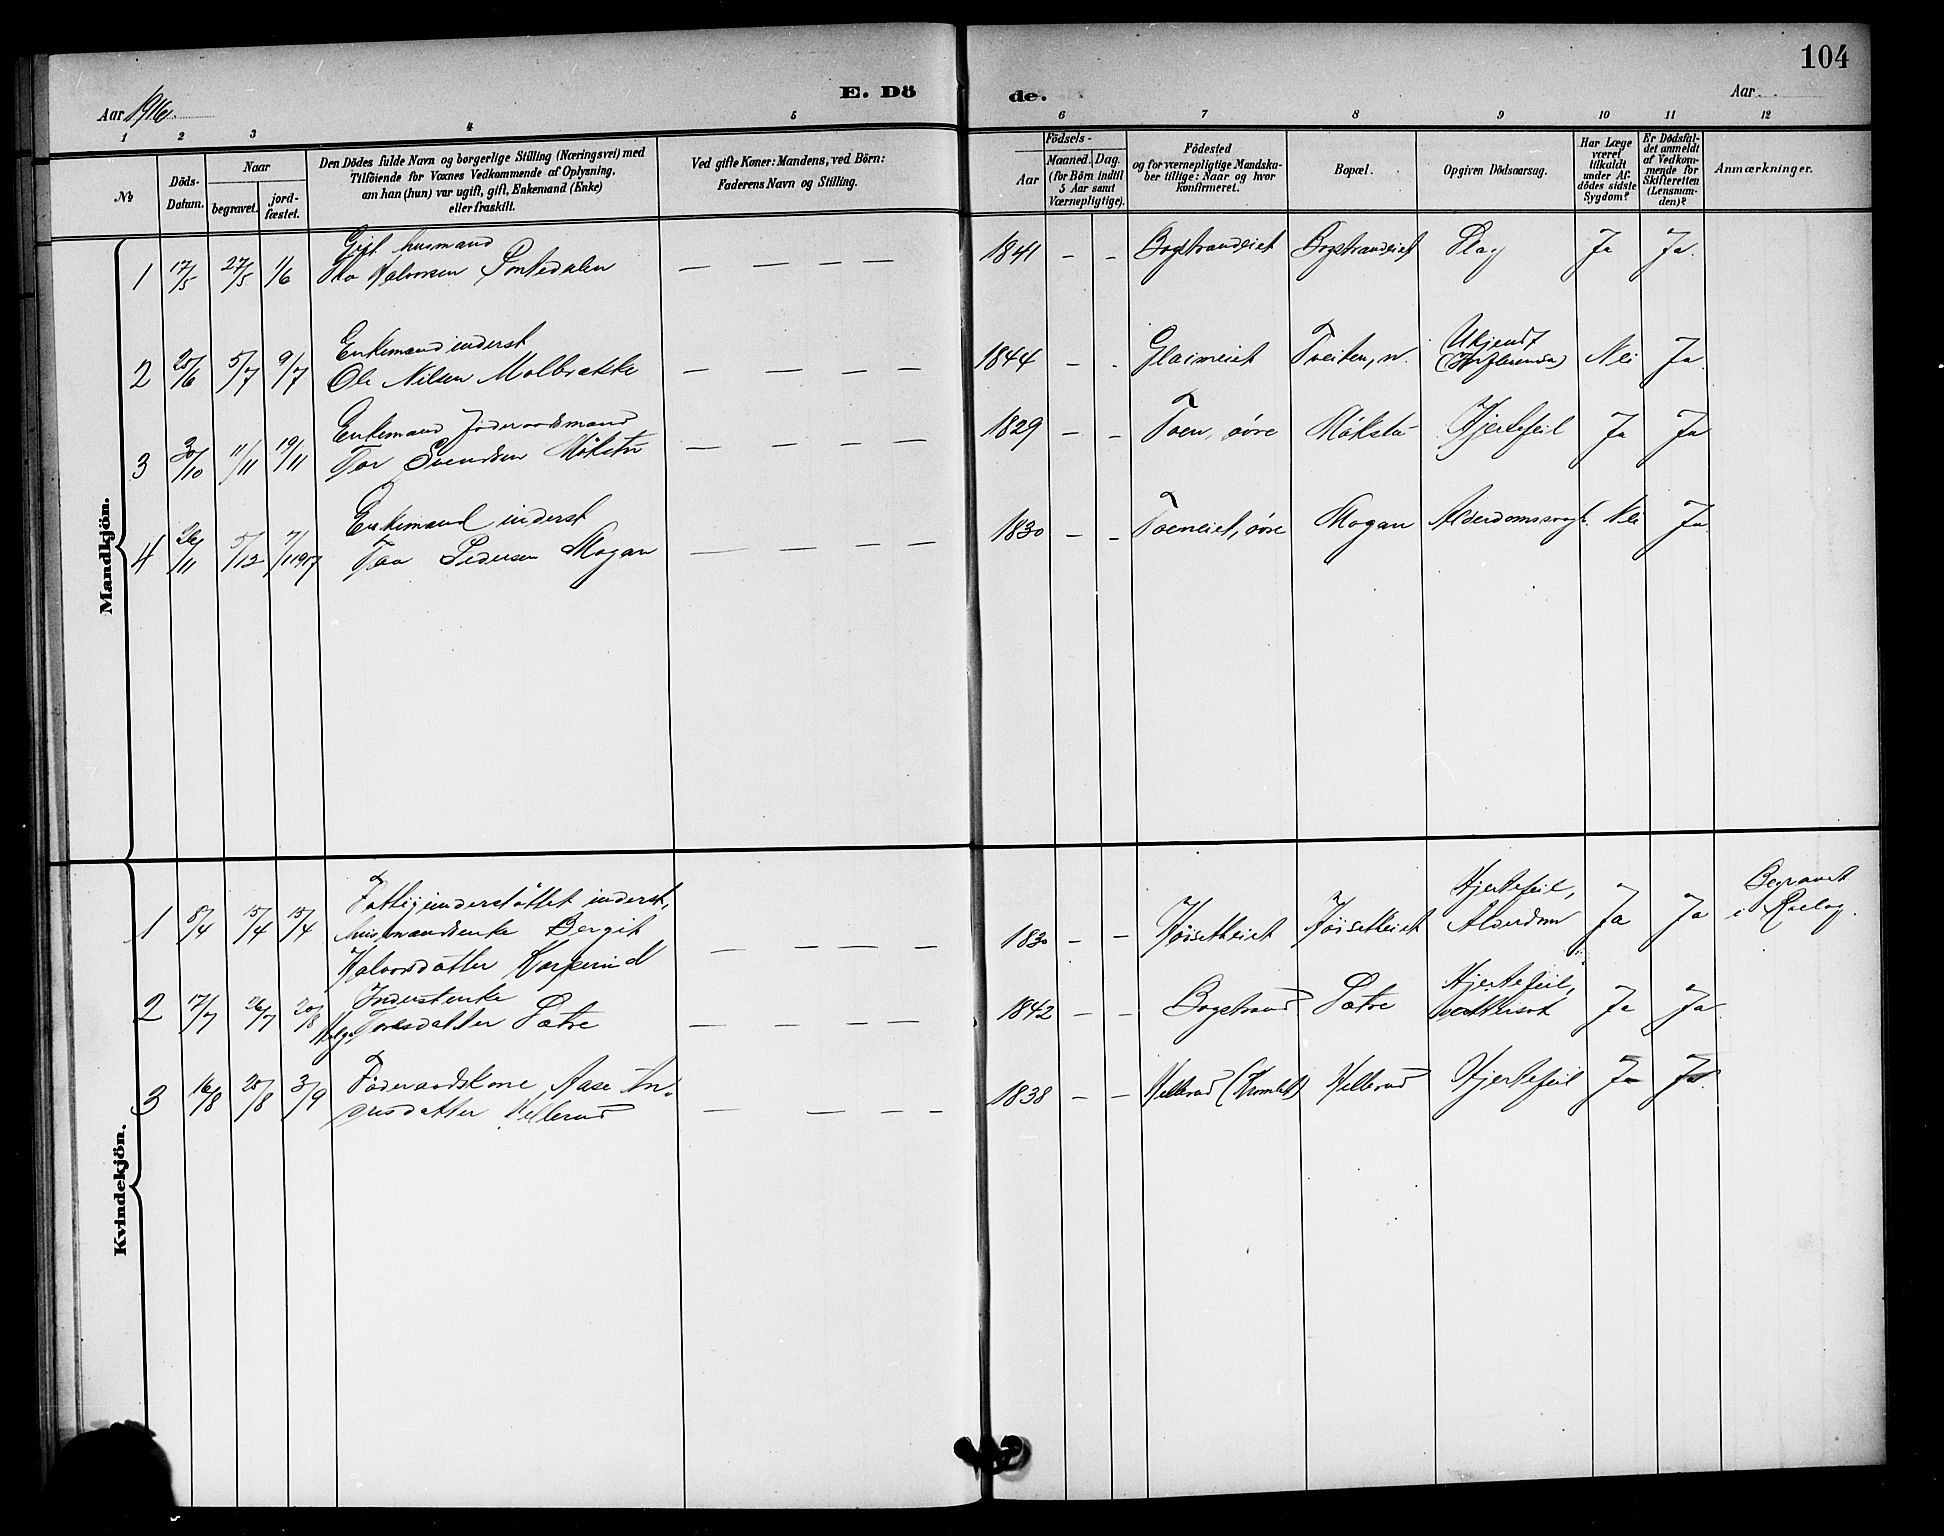 104
Aar 1916.
E. Dö
de.
Aar
1 2 3 4 5 6 7 8 9 10 11 12
No
Döds-
Datum.
Naar
begravet.
jord-
fæstet.
Den Dödes fulde Navn og borgerlige Stilling (Næringsvei) med
Tilföiende for Voxnes Vedkommende af Oplysning,
om han (hun) var ugift, gift, Enkemand (Enke)
eller fraskilt.
Ved gifte Koner: Mandens, ved Börn:
Faderens Navn og Stilling.
Födsels-
Aar
Maaned. Dag.
(for Börn indtil
5 Aar samt
Værnepligtige).
Födested
og for værnepligtige Mandska-
ber tillige: Naar og hvor
konfirmeret.
Bopæl.
Opgiven Dödsaarsag.
Har Læge
været
tilkaldt
under Af-
dödes sidste
Sygdom?
Er Dödsfal-
det anmeldt
af Vedkom-
mende for
Skifteretten
(Lensman-
den)?
Anmærkninger.
Mandkjön.
Gift husmand
1 17/5 27/5 1/6 Halvorsen — — — — 1841 — — Bogstrandeiet Bogstrandeiet Slag Ja Ja.
Enkemand inderst
2 25/6 5/7 9/7 Ole Nilsen Molbrække — — — — 1844 — - Tveiten, n. Ukjendt
(Influensa) Nei Ja.
Enkemand Föderaadsmand
3 30/10 11/11 19/11 Tor Svendsen Mökstu — — — — 1829 — — Toen, övre Mökstu Hjertefeil Ja Ja
Enkemand inderst
4 26/11 5/12 7/1 1917 Pedersen Mogan — — — — 1830 — — Toeneiet, övre Mogan Nei Ja
Kvindekjön.
Fattigunderstöttet inderst,
1 8/4 15/4 15/4 husmandsenke Bergit
Halvorsdatter — — — — 1830 — — Höisetheiet Höisetheiet Hjertefeil,
Alderdom Ja Ja Begravet
i
Inderstenke
2 17/7 26/7 20/8 Helge Toresdatter Sætre — — — — 1842 — — Bogstrand Sætre Hjertefeil,
vattersot Ja Ja.
3 16/8 25/8 3/9 Föderaadskone Aase An-
Hellerud — — — — 1838 — — Hellerud Hellerud Hjertefeil Ja Ja.